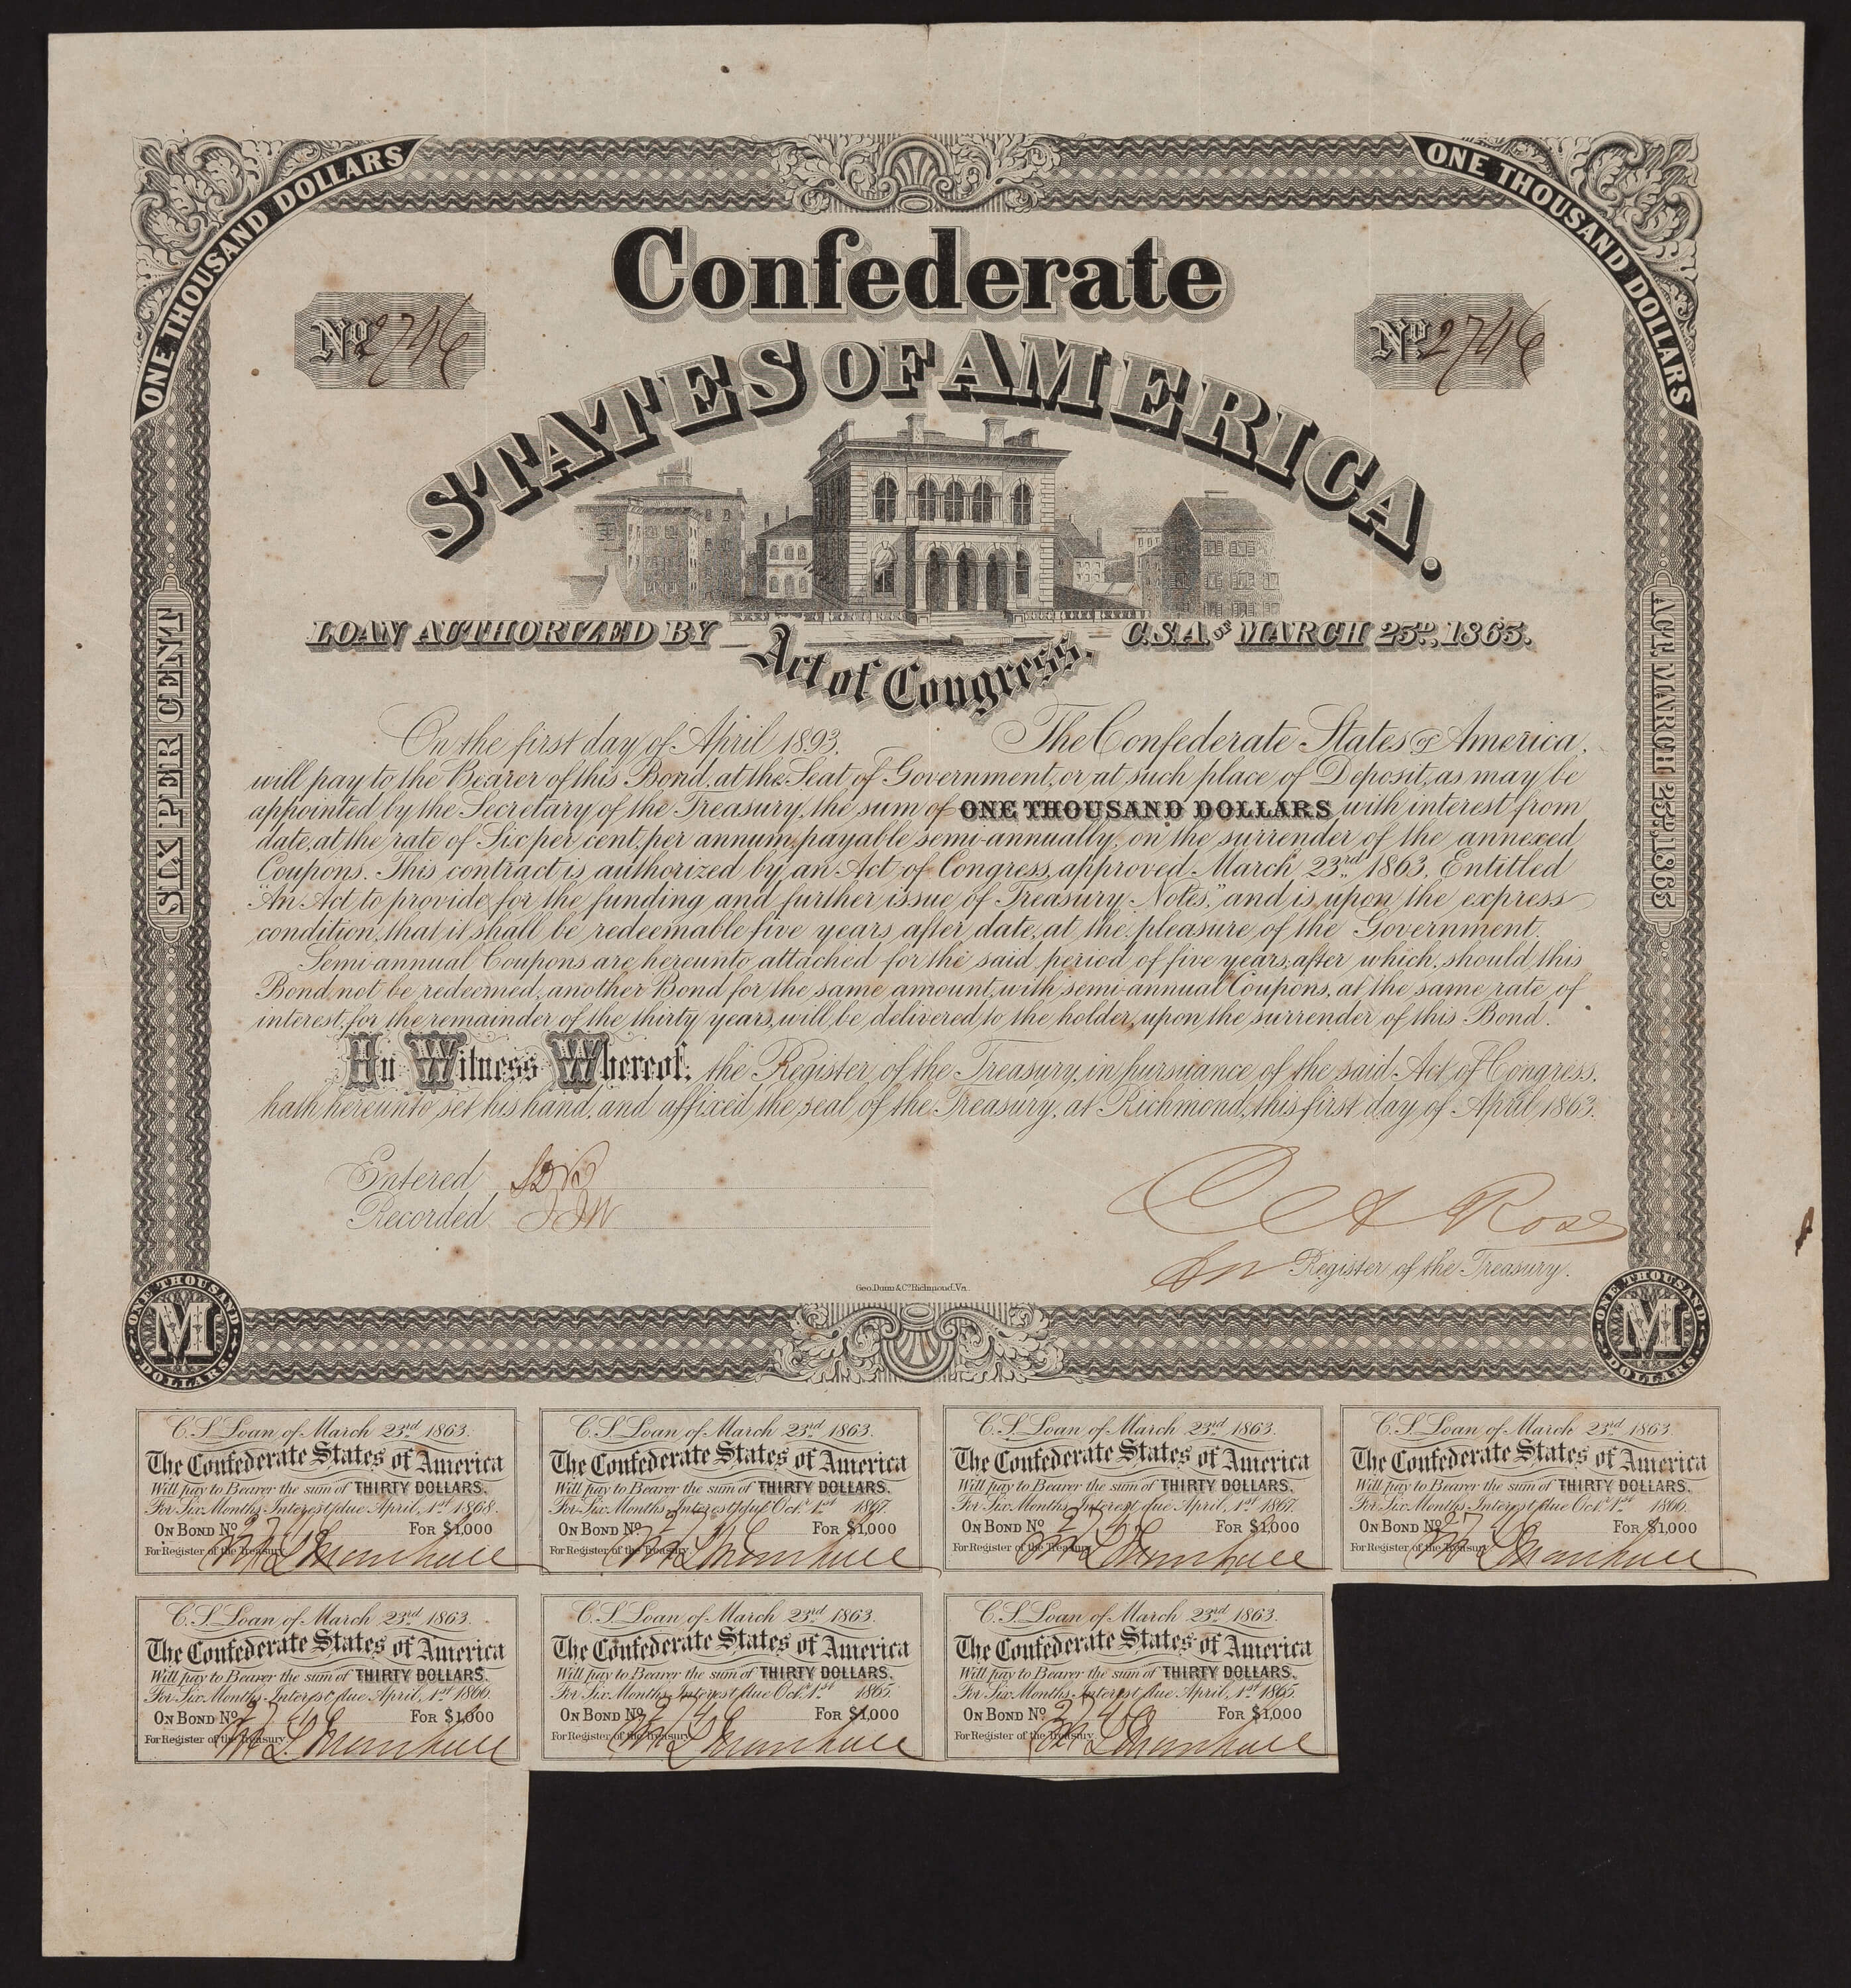 ONE THOUSAND DOLLARS
ONE THOUSAND DOLLARS
Confederate
No. 2746
No. 2746
STATES OF AMERICA.
LOAN AUTHORIZED BY Act of Congress. C.S.A. OF MARCH 23D., 1863.
SIX PER CENT
ACT, MARCH 23D., 1863
On the first day of April 1893, The Confederate States of America,
will pay to the Bearer of this Bond, at the Seat of Government, or at such place of Deposit, as may be
appointed by the Secretary of the Treasury, the sum of ONE THOUSAND DOLLARS with interest from
date, at the rate of Six per cent, per annum, payable semi-annually, on the surrender of the annexed
Coupons. This contract is authorized by an Act of Congress, approved March 23rd 1863, Entitled
"An Act to provide for the funding and further issue of Treasury Notes," and is upon the express
condition, that it shall be redeemable five years after date, at the pleasure of the Government.
Semi-annual Coupons are hereunto attached for the said period of five years, after which, should this
Bond, not be redeemed, another Bond for the same amount, with semi-annual Coupons, at the same rate of
interest, for the remainder of the thirty years, will be delivered to the holder, upon the surrender of this Bond.
In Witness Whereof, the Register of the Treasury, in pursuance of the said Act of Congress,
hath hereunto set his hand, and affixed the seal of the Treasury, at Richmond, this first day of April 1863.
Entered
Recorded
C A Rose
for Register of the Treasury.
Geo. Dunn & Co. Richmond, Va.
ONE THOUSAND M DOLLARS
ONE THOUSAND M DOLLARS
C. S. Loan of March 23rd 1863.
The Confederate States of America
Will pay to Bearer the sum of THIRTY DOLLARS.
For Six Months Interest due April, 1st 1868.
ON BOND No. 2746 FOR $1,000
For Register of the Treasury.
C. S. Loan of March 23rd 1863.
The Confederate States of America
Will pay to Bearer the sum of THIRTY DOLLARS.
For Six Months Interest due Oct. 1st 1867.
ON BOND No. 2746 FOR $1,000
For Register of the Treasury.
C. S. Loan of March 23rd 1863.
The Confederate States of America
Will pay to Bearer the sum of THIRTY DOLLARS.
For Six Months Interest due April, 1st 1867.
ON BOND No. 2746 FOR $1,000
For Register of the Treasury.
C. S. Loan of March 23rd 1863.
The Confederate States of America
Will pay to Bearer the sum of THIRTY DOLLARS.
For Six Months Interest due Oct. 1st 1866.
ON BOND No. 2746 FOR $1,000
For Register of the Treasury.
C. S. Loan of March 23rd 1863.
The Confederate States of America
Will pay to Bearer the sum of THIRTY DOLLARS.
For Six Months Interest due April, 1st 1866.
ON BOND No. 2746 FOR $1,000
For Register of the Treasury.
C. S. Loan of March 23rd 1863.
The Confederate States of America
Will pay to Bearer the sum of THIRTY DOLLARS.
For Six Months Interest due Oct. 1st 1865.
ON BOND No. 2746 FOR $1,000
For Register of the Treasury.
C. S. Loan of March 23rd 1863.
The Confederate States of America
Will pay to Bearer the sum of THIRTY DOLLARS.
For Six Months Interest due April, 1st 1865.
ON BOND No. 2746 FOR $1,000
For Register of the Treasury.